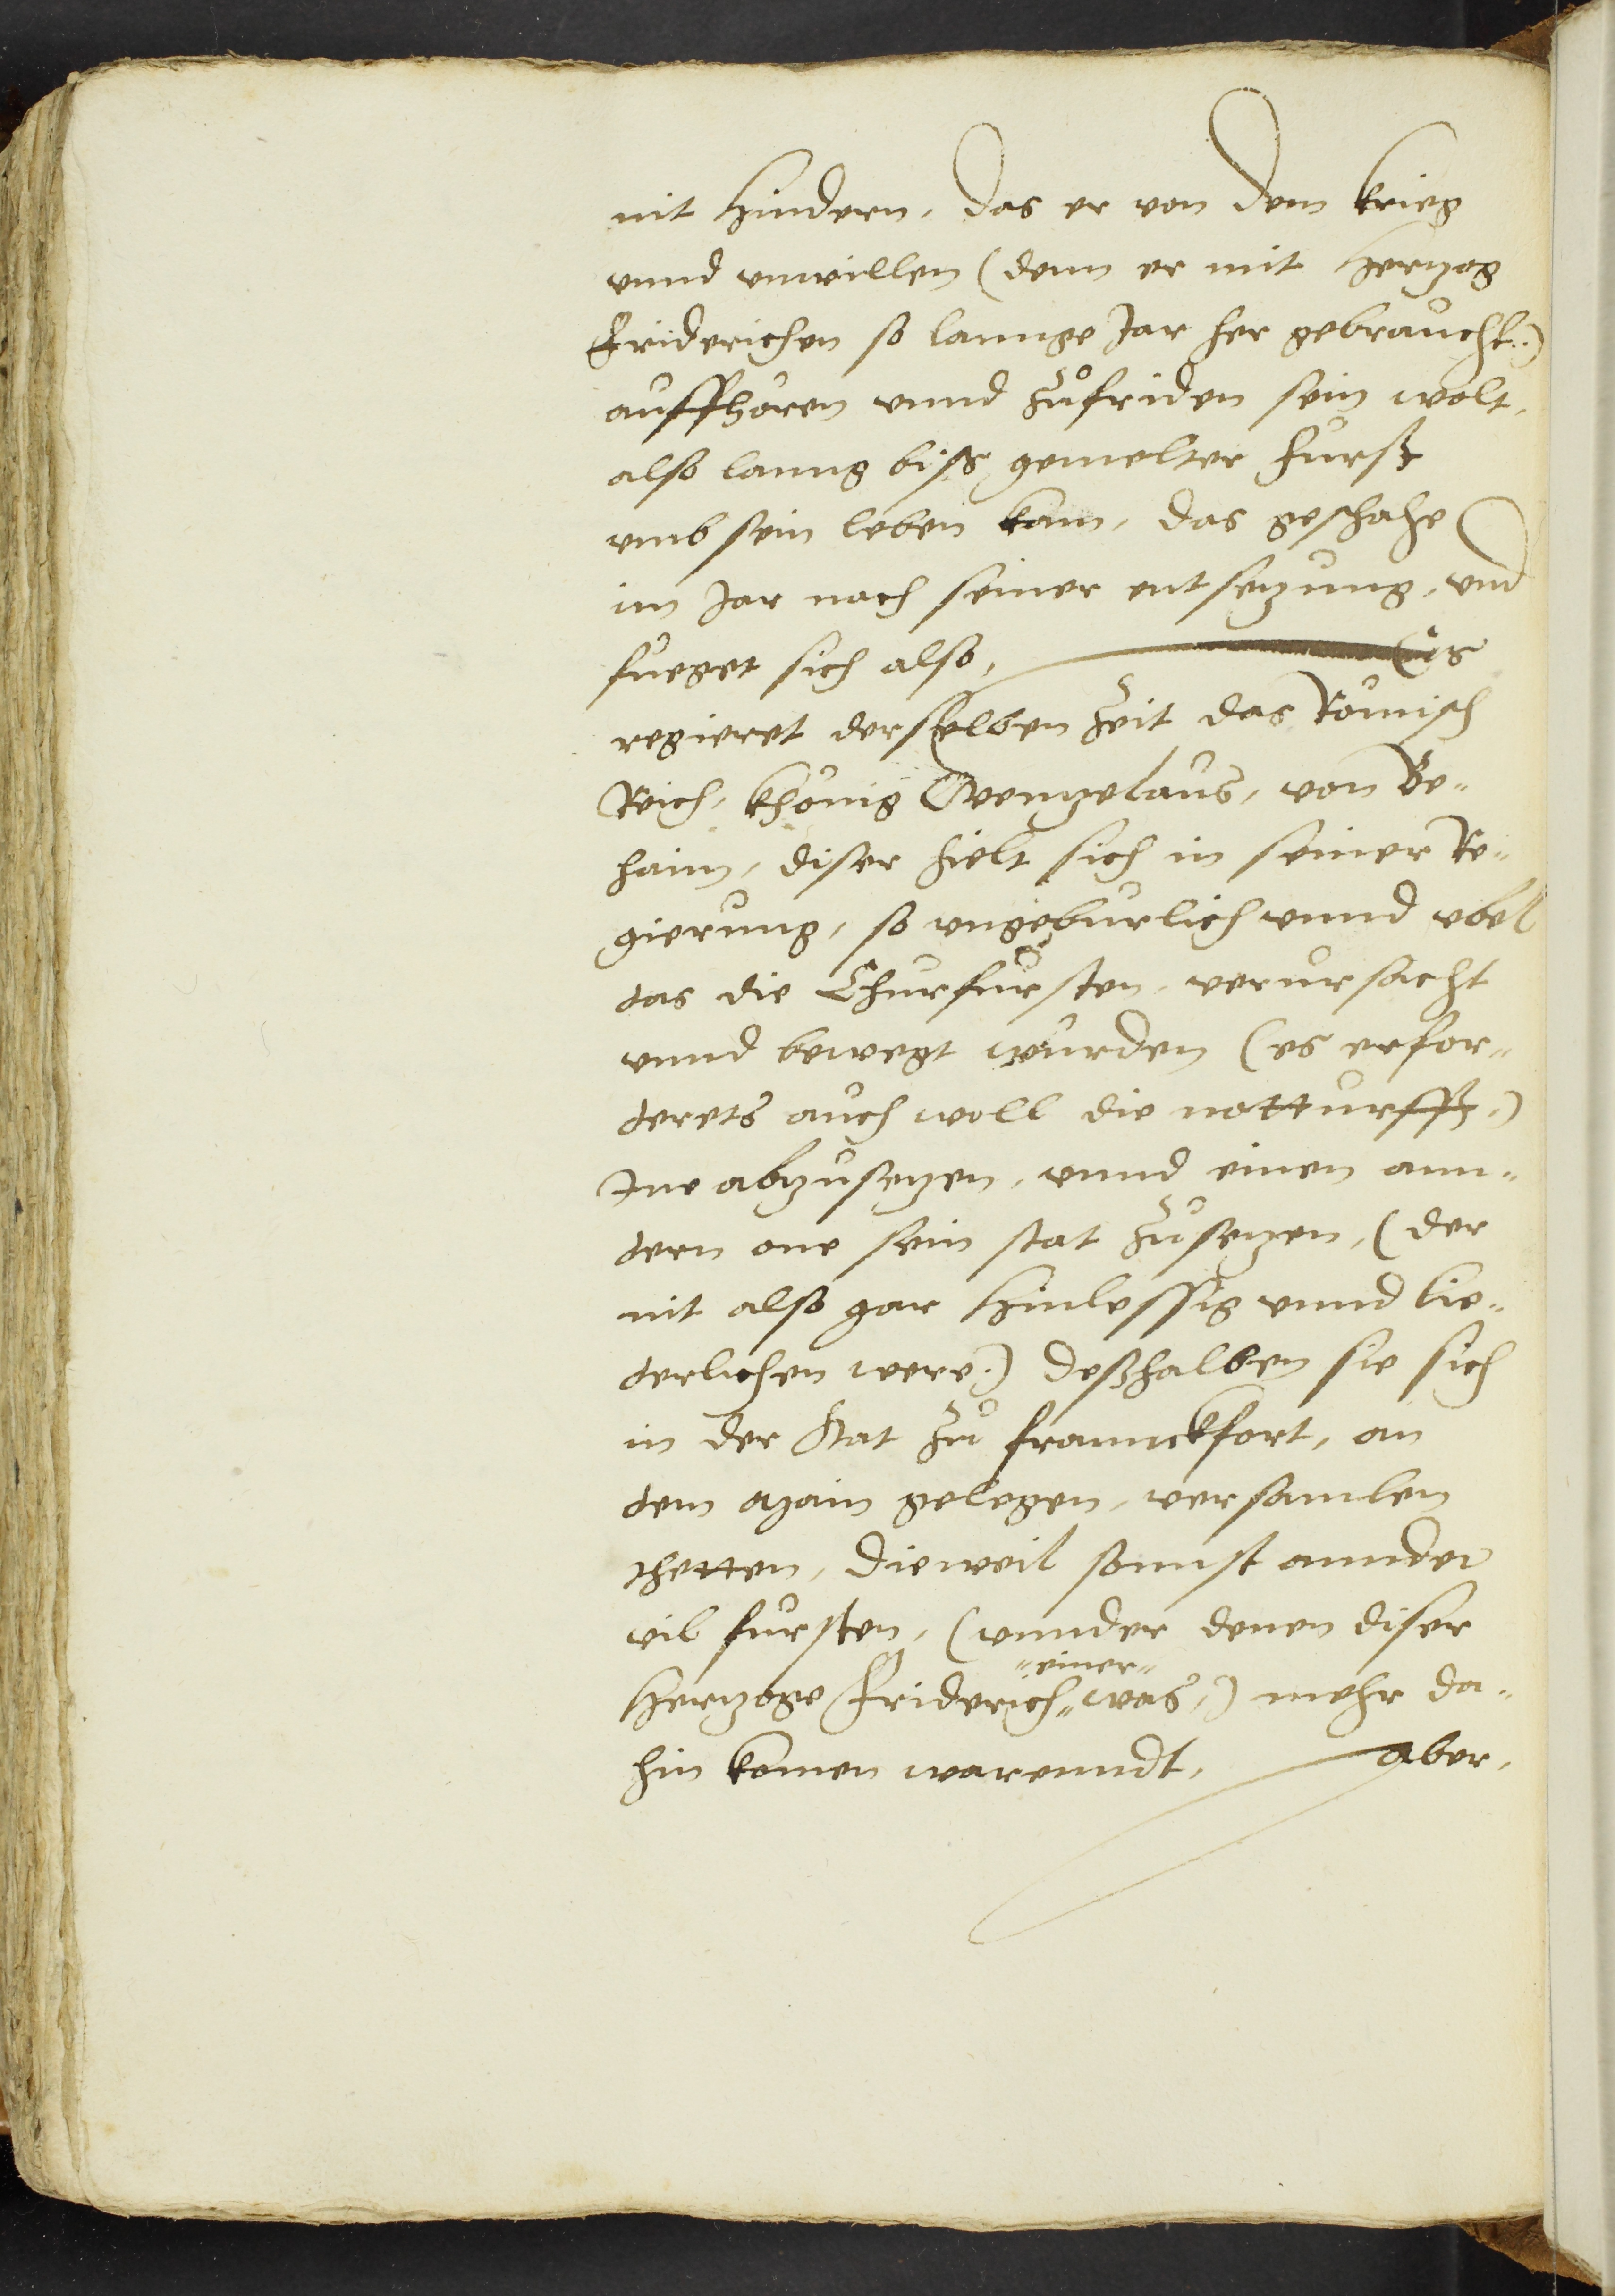 nit hindern, das er von dem krieg
vnnd vnwillen (denn er mit hertzog
Friderichen so lannge Jar her gebraucht:)
auffhören vnnd zůfriden sein wölt,
also lanng biss gemelter Fürst
vmb sein leben kam, das geschahe
im Jar nach seiner entsetzung, vnd
fueget sich also, Es
regieret derselben Zeit das Römisch
Reich, khönig Wentzelaus, von Be„
haim, diser hielt sich in seiner Re„
gierung, so vngebürlich vnnd vbel
das die Churfürsten, verursacht
vnnd bewegt würden (es erfor„
derets auch woll die notturfft,)
Ine abzusetzen, vnnd einen ann„
dern ane sein stat zůsetzen, (der
nit also gar hinlessig vnnd lie„
derlichen were:) desshalben sie sich
in der Stat zů frannckfort, an
dem Main gelegen, versamlen
thetten, Dieweil sonnst annder
vil fürsten, (vnnder denen diser
hertzoge Friderich „einer„ was,) mehr da„
hin komen warenndt, aber,